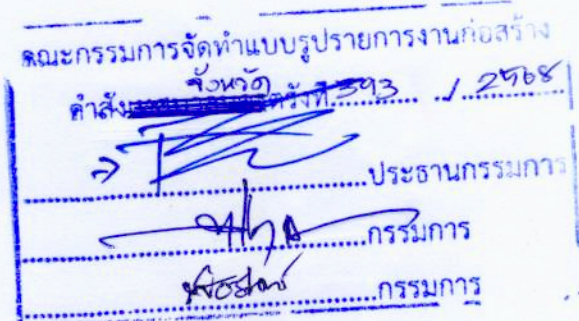 คณะกรรมการจัดทำแบบรูปรายการงานก่อสร้าง
จังหวัด
คำสั่ง ตรังที่ 593 / 2568
ประธานกรรมการ
กรรมการ
กรรมการ